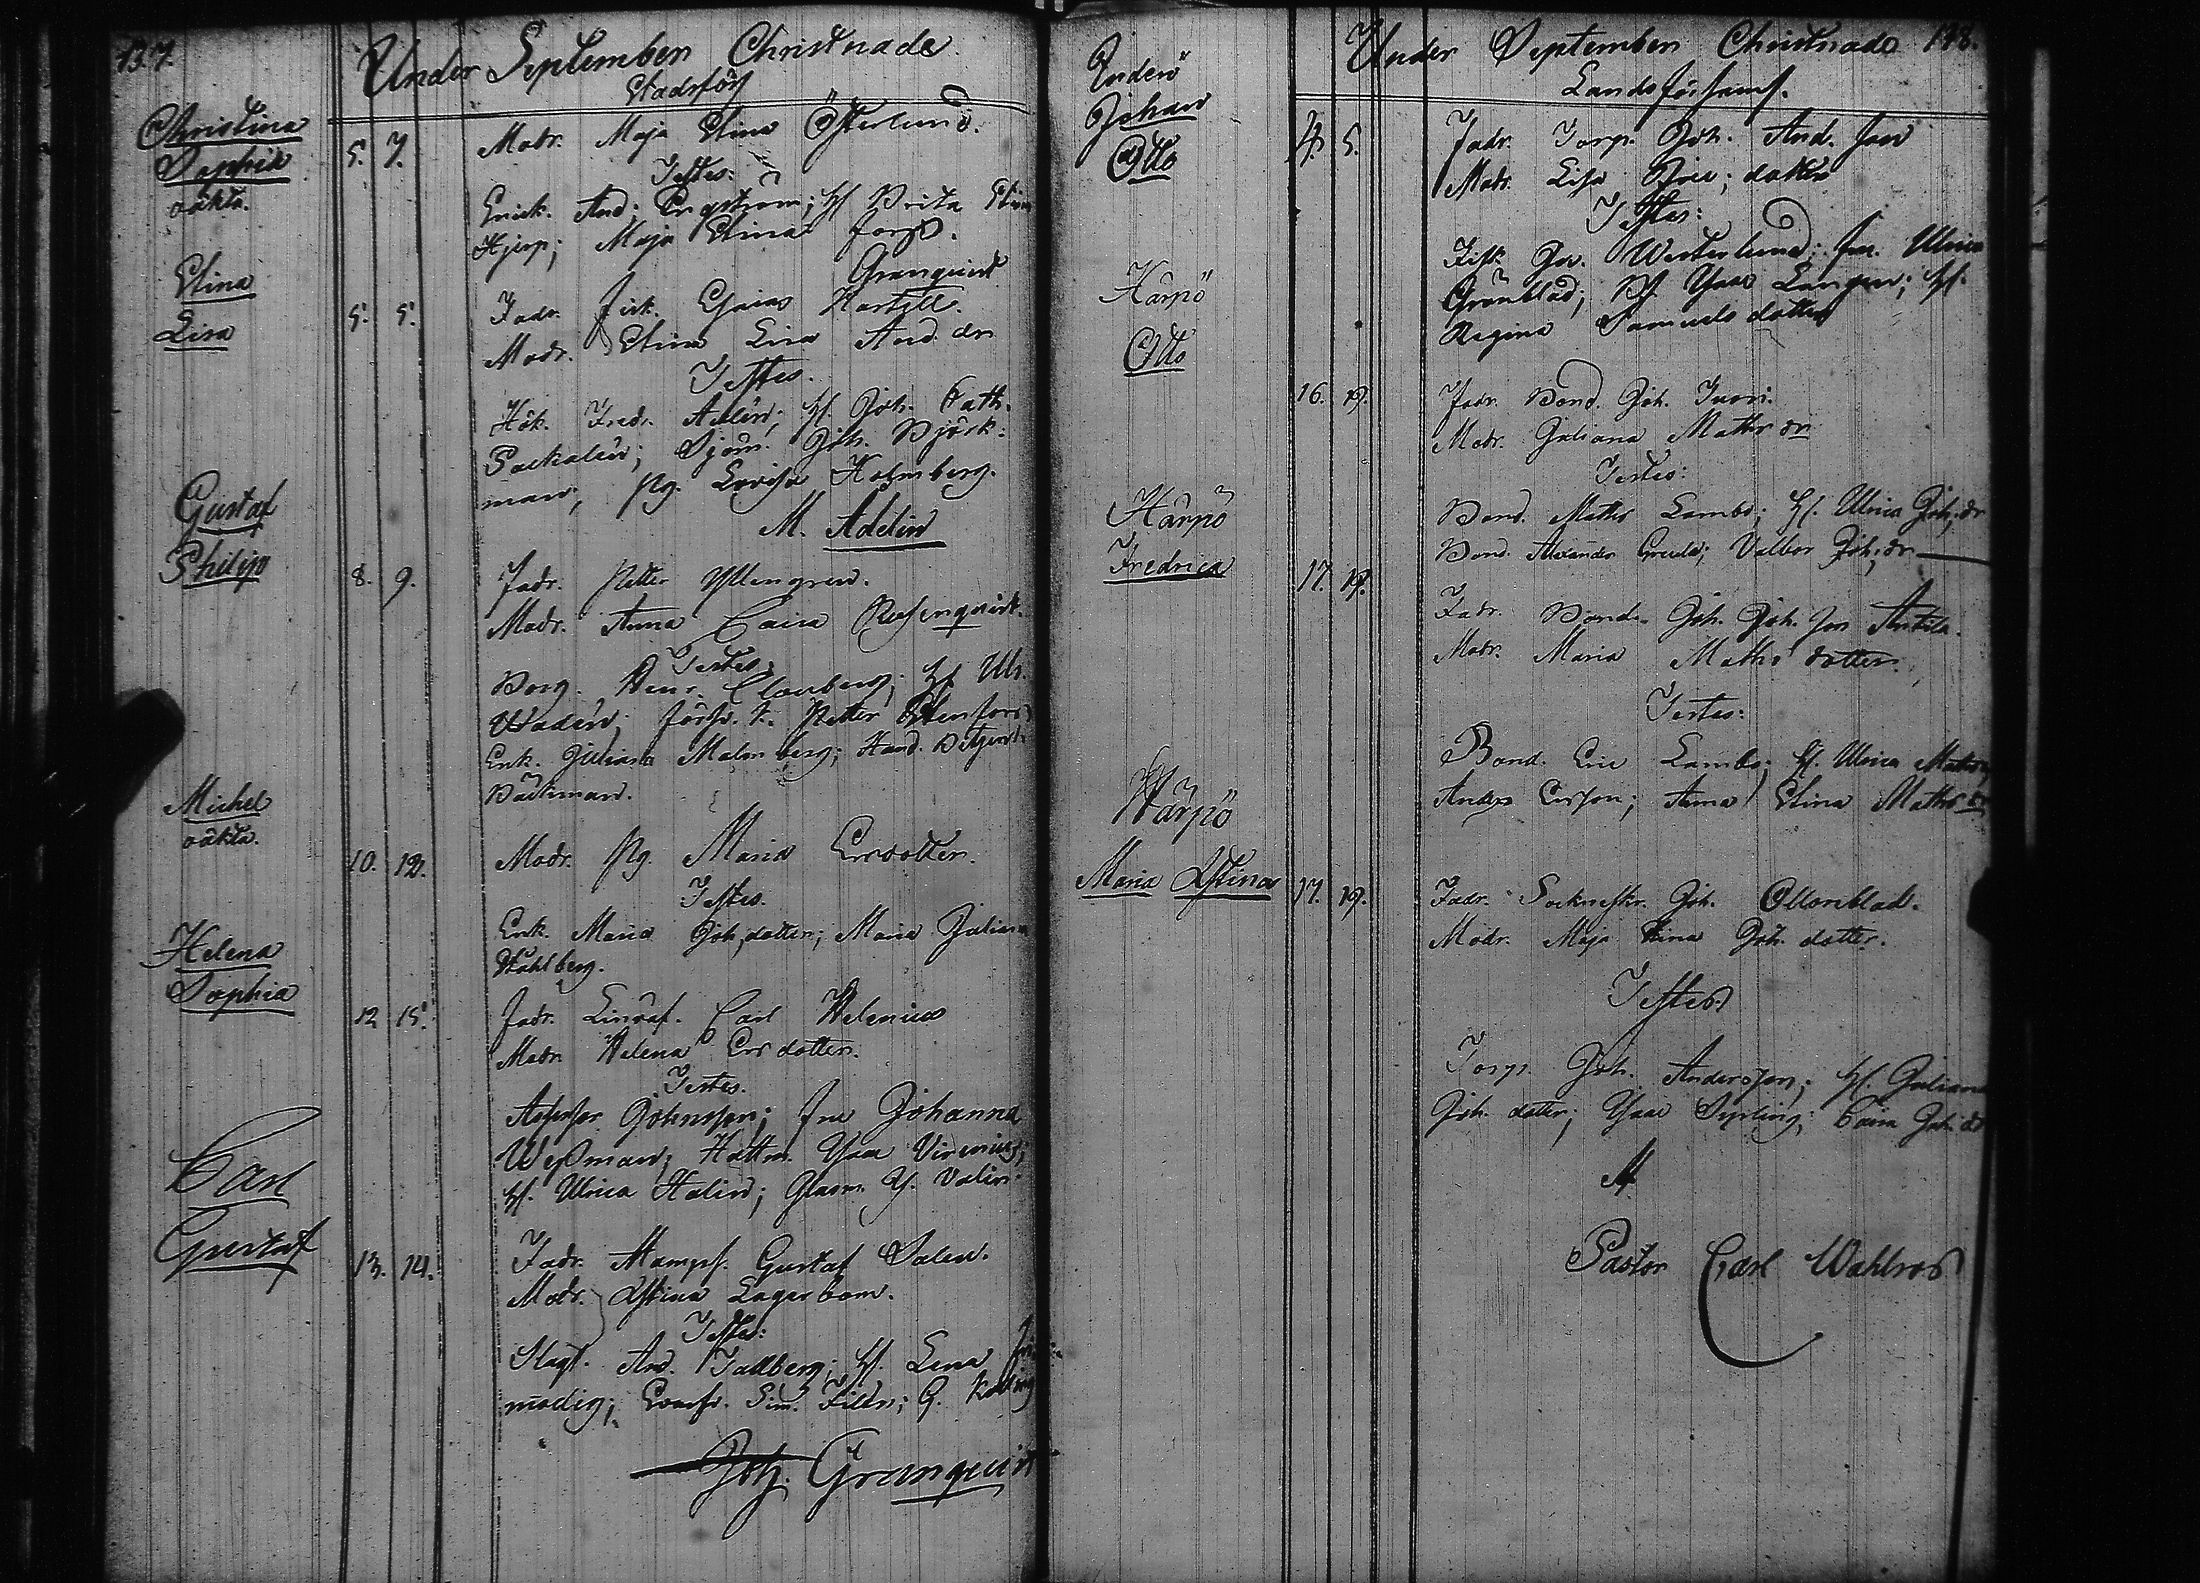 137.
Under September Christnade.
Stadsförs
Christina
Sophia
oäkta.
5. 7.
Modr. Maja Stina Österlund.
Testes:
Erick. And; Engström; H Brita Stina
Hjerp; Maja Stina Forss.
Granquist
Stina
Lisa
5. 5.
Fadr. fisk. Esaias Hartell.
Modr. Stina Lisa And. dr
Testes.
Hök. Fredr. Adelin; H. Joh. Cath.
Packalén; Sjöm. Joh. Björk:
man; Pg. Lovisa Holmberg.
M. Adelin
Gustaf
Philip
8. 9.
Fadr. Petter Yllengren.
Modr. Anna Caisa Rosenquist.
Testes:
Borg. Henr. Clouberg; H. Ulr.
Wadén; Petter Stenfors
Enk. Juliana Malmberg; Hand. Betjent
Bäckman.
Michel
oäkta.
10. 12.
Modr. Pg. Maria Ersdotter.
Testes.
Enk. Maria Joh,dotter; Maria Juliana
Ståhlberg.
Helena
Sophia
12 15.
Fadr. Carl Helenius
Modr. Helena Ersdotter.
Testes.
Assessor Johnsson; Fru Johanna
Wessman; Isaac Virenius;
H. Ulrica Halin; Glasm. Valin.
Carl
Gustaf
13. 14.
Fadr. Stampf. Gustaf Salen.
Modr. Stina Lagerbom.
Testes:
Slagt. And. Tallberg; H. Lena
modig; Sim. Filén; G.
Joh. Granquist
Under September Christnade 138.
Landsförsaml.
Enderö
Johan
Otto
4. 5.
Fadr. Torp. Joh. And. son
Modr. Lisa Eric; dotter
Testes:
Fisk Gu. Westerlund; fru. Ulrica
Grönblad; Isaac Langen; H.
Regina Samuels dotter
Härpö
Otto
16. 19.
Fadr. Bond. Joh. Juori.
Modr. Juliana Mathsdr
Testes:
Bond. Maths Lambo; H. Ulrica Joh;dr
Bond. Alexander Greula; Valbor Joh;dr
Härpö
Fredrica
17. 19.
Fadr. Bonde Joh. Joh. son Antila.
Modr. Maria Maths dotter.
Testes:
Bond. Eric Lambo; H. Ulrica Mathsdr
Anders Ersson; Anna Stina Mathsdr
Härpö
Maria Stina
17. 19.
Fadr. Sockneskr. Joh. Ollonblad.
Modr. Maja Stina Joh. dotter.
Testes
Torp. Joh. Andersson; H. Juliana
Joh. dotter; Isaac Syrling; Caisa Joh.dr
Pastor Carl Wahlroos